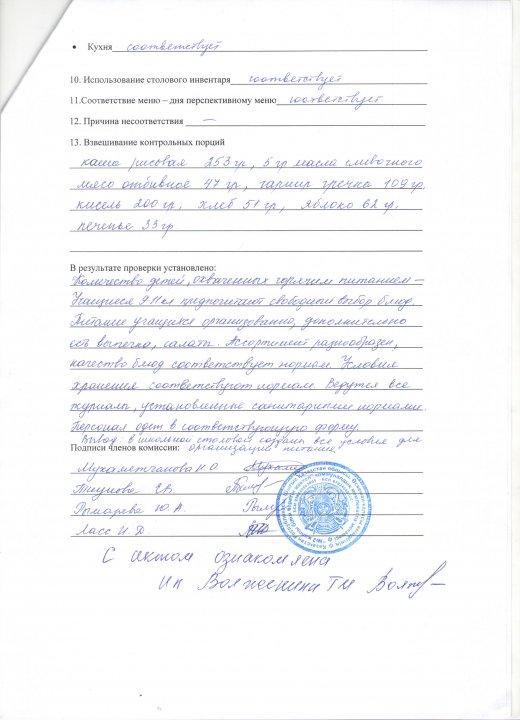 • Кухня соответствует
10. Использование столового инвентаря соответствует
11.Соответствие меню – дня перспективному меню соответствует
12. Причина несоответствия —
13. Взвешивание контрольных порций
каша рисовая 253 гр, 5 гр масла сливочного
мясо отбивное 47 гр, гарнир гречка 109 гр,
кисель 200 гр, хлеб 51 гр, яблоко 62 гр.
печенье 33 гр
В результате проверки установлено:
Количество детей, охваченных горячим питанием —
Учащиеся 9-11 кл предпочитают свободный выбор блюд.
Питание учащихся организованно, дополнительно
есть выпечка, салаты. Ассортимент разнообразен,
качество блюд соответствует нормам. Условия
хранения соответствуют нормам. Ведутся все
журналы, установленные санитарными нормами.
Персонал одет в соответствующую форму.
Вывод: в школьной столовой созданы все условия для
Подписи членов комиссии: организации питания
Мухаметжанова Н.О.
Ю.А.
Ласс И.Д.
С актом ознакомлена
ИП